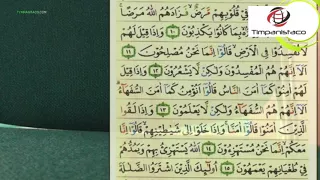 TIMPANISTACO.COM
Timpanistaco
فِي قُلُوبِهِمْ مَرَضٌ فَزَادَهُمُ اللهُ مَرَضًا
بِمَا كَانُوا يَكْذِبُونَ ١٠ وَإِذَا قِيلَ لَهُمْ
لَا تُفْسِدُوا فِي الْأَرْضِ قَالُوا إِنَّمَا نَحْنُ مُصْلِحُونَ ١١
أَلَا إِنَّهُمْ هُمُ الْمُفْسِدُونَ وَلَكِنْ لَا يَشْعُرُونَ ١٢ وَإِذَا قِيلَ
لَهُمْ آمِنُوا كَمَا آمَنَ النَّاسُ قَالُوا أَنُؤْمِنُ كَمَا آمَنَ السُّفَهَاءُ
أَلَا إِنَّهُمْ هُمُ السُّفَهَاءُ وَلَكِنْ لَا يَعْلَمُونَ ١٣ وَإِذَا لَقُوا
الَّذِينَ آمَنُوا قَالُوا آمَنَّا وَإِذَا خَلَوْا إِلَى شَيَاطِينِهِمْ قَالُوا إِنَّا
مَعَكُمْ إِنَّمَا نَحْنُ مُسْتَهْزِئُونَ ١٤ اللهُ يَسْتَهْزِئُ بِهِمْ وَيَمُدُّهُمْ
فِي طُغْيَانِهِمْ يَعْمَهُونَ ١٥ أُولَئِكَ الَّذِينَ اشْتَرَوُا الضَّلَالَةَ